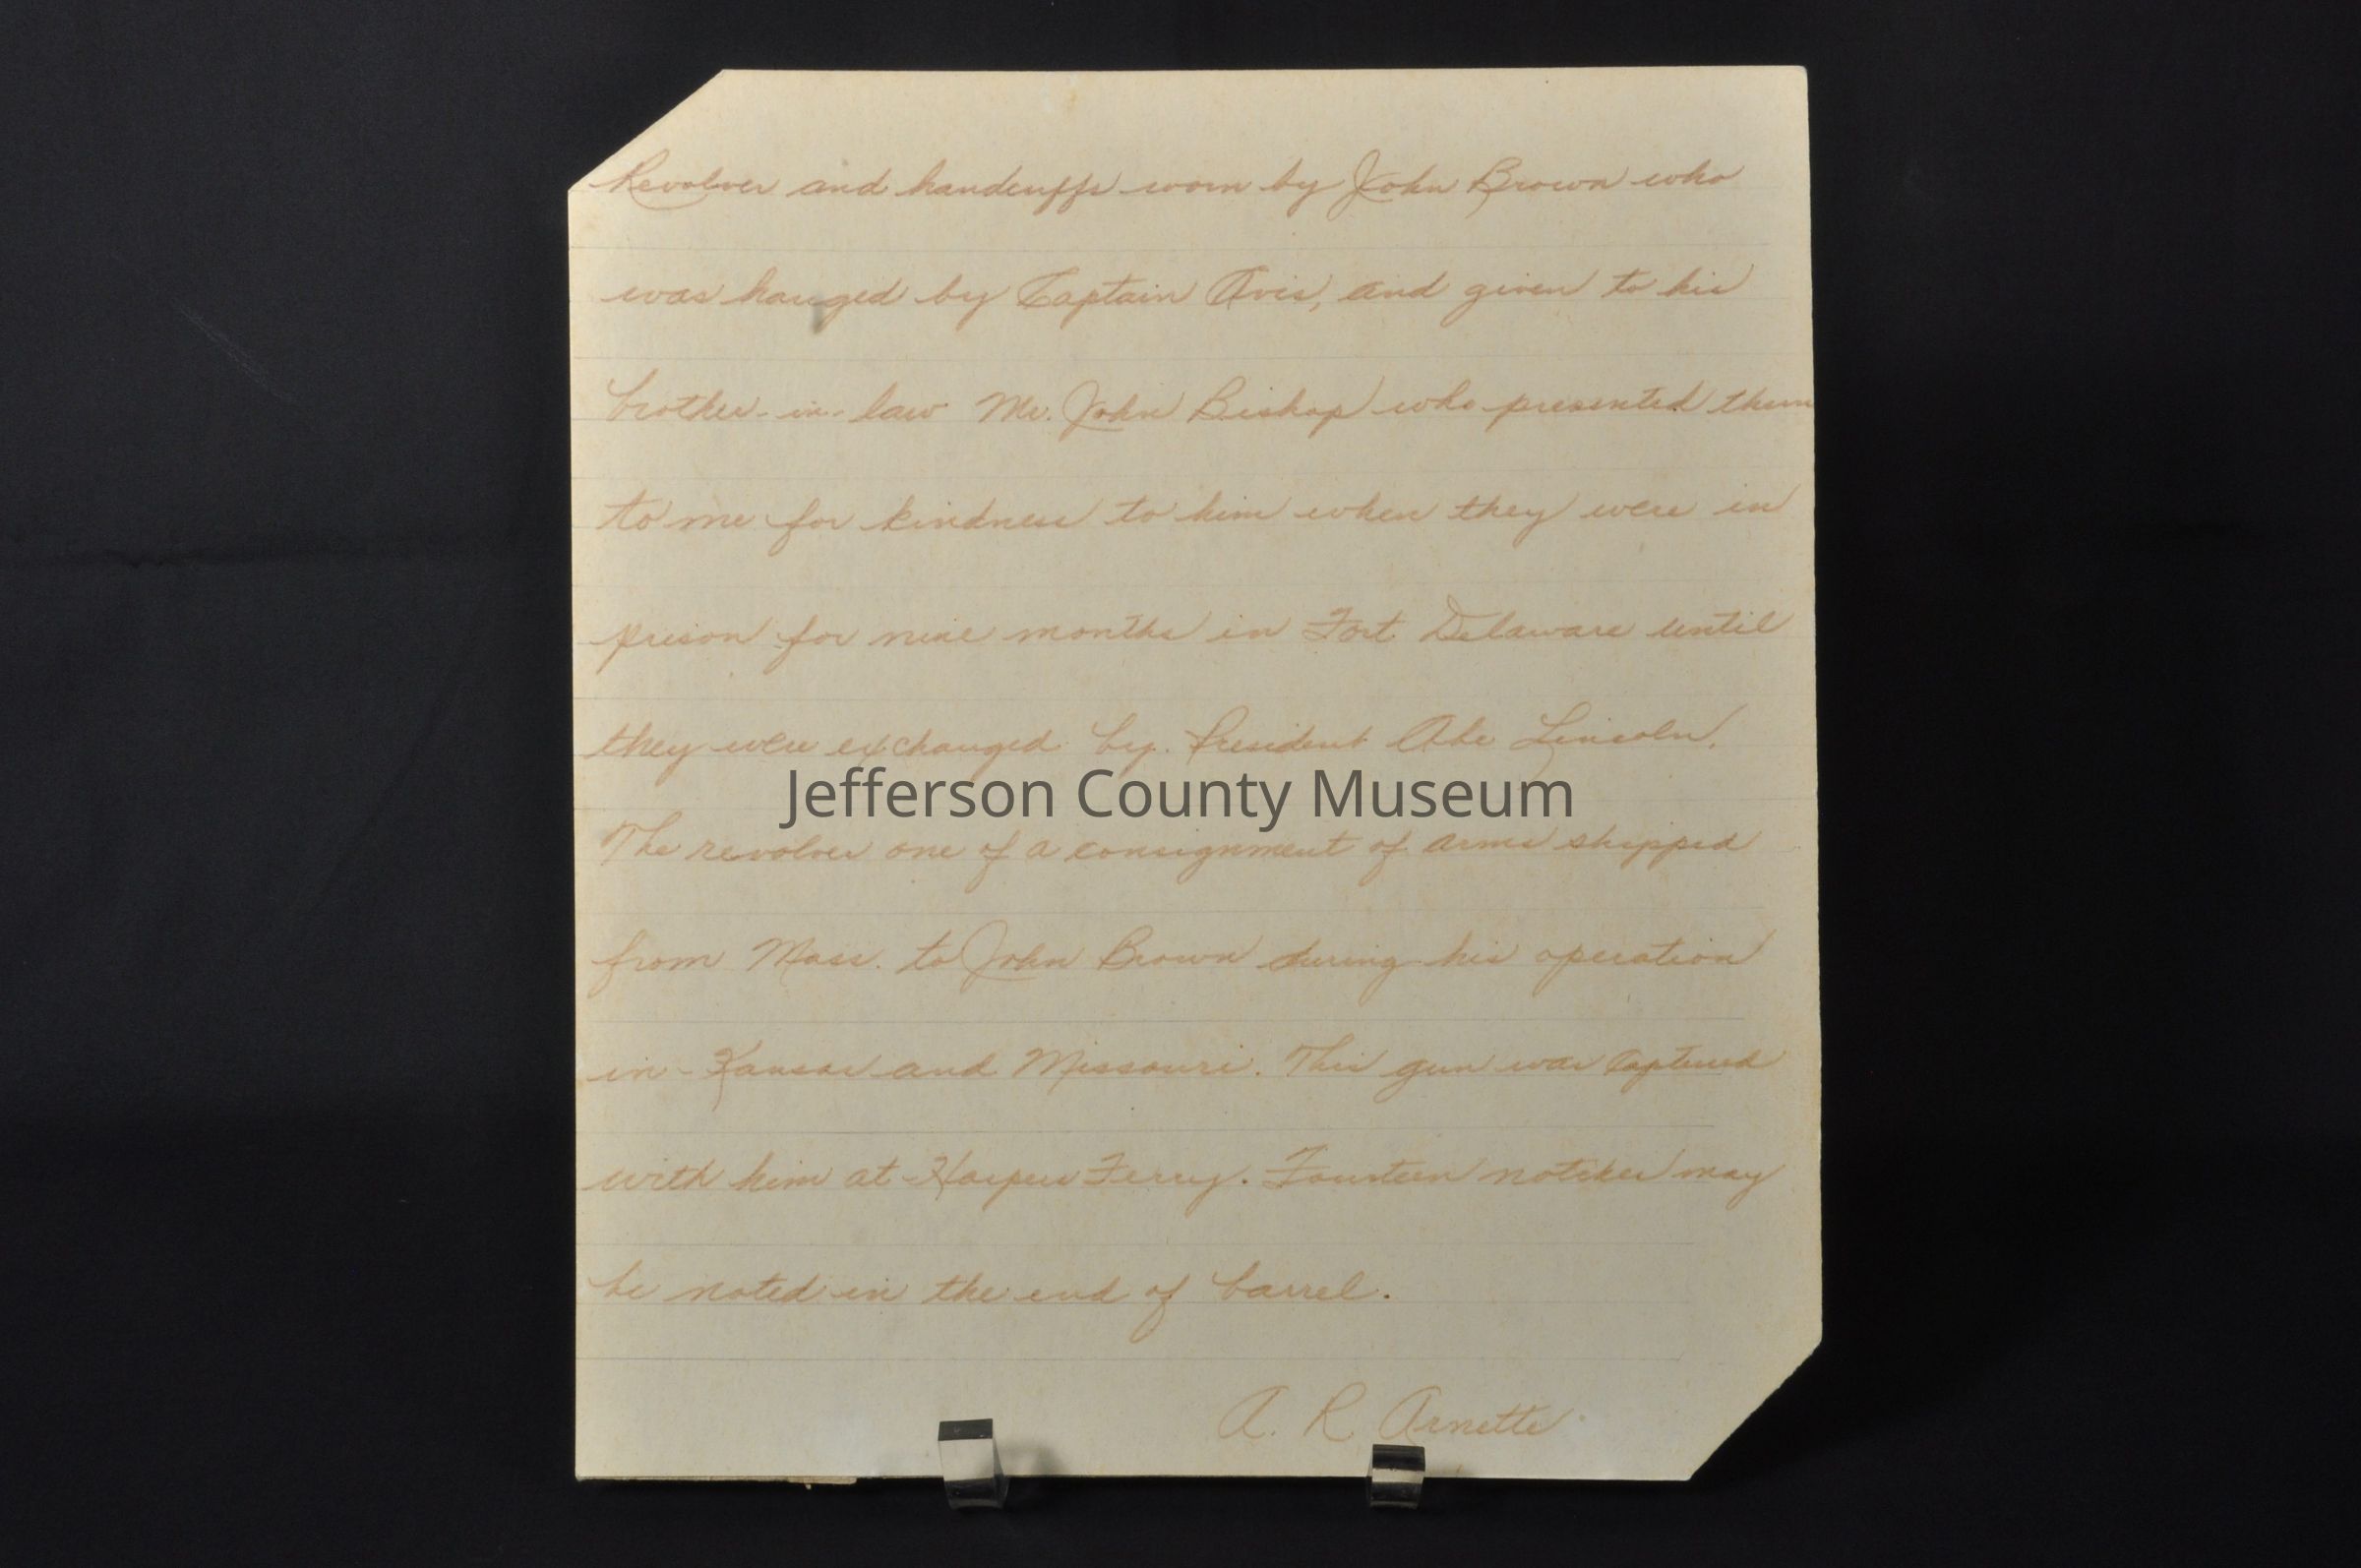 Revolver and handcuffs worn by John Brown who
was hanged by Captain Avis, and given to his
brother-in-law Mr. John Bishop who presented them
to me for kindness to him when they were in
prison for nine months in Fort Delaware until
they were exchanged by. President Abe Lincoln.
Jefferson County Museum
The revolver one of a consignment of arms shipped
from Mass. to John Brown during his operation
in Kansas and Missouri. This gun was captured
with him at Harpers Ferry. Fourteen notches may
be noted in the end of barrel.
A. R. Arnette